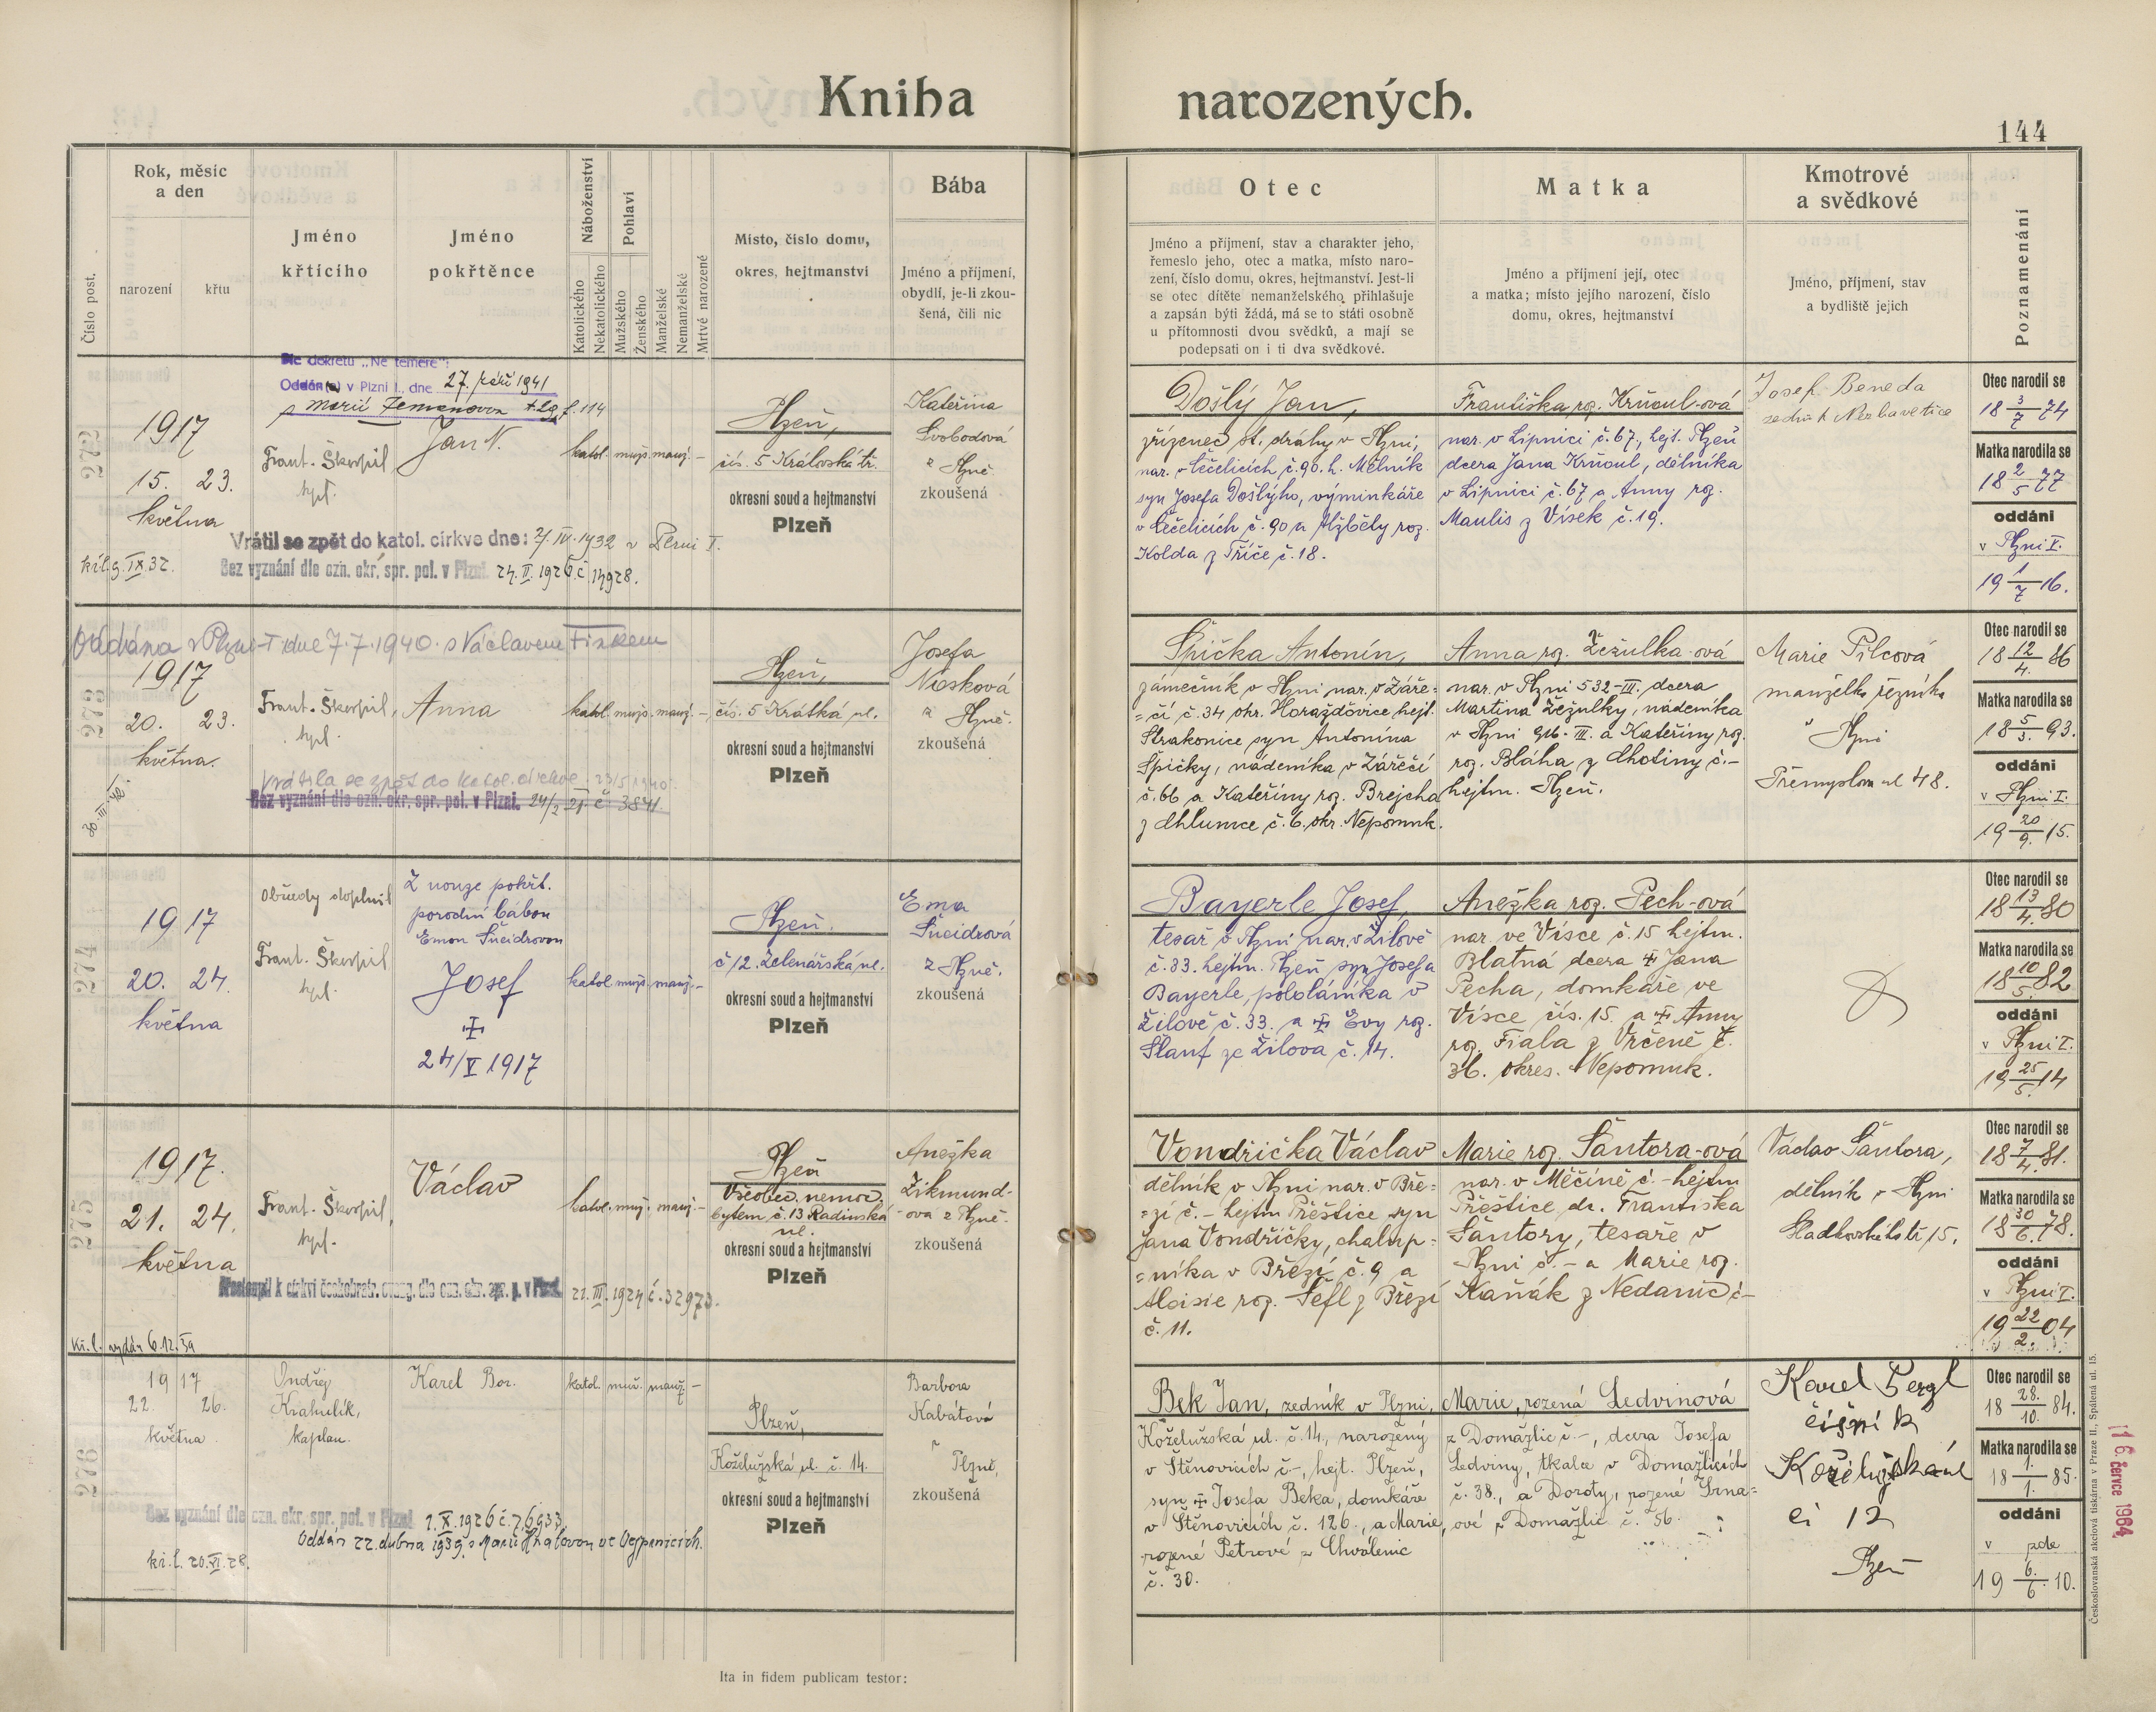 Kniha
narozených.
144
Číslo post.
Rok, měsíc
a den
narození
křtu
Jméno
křtícího
Jméno
pokřtěnce
Náboženství
Katolického
Nekatolického
Pohlaví
Mužského
Ženského
Manželské
Nemanželské
Mrtvě narozené
Místo, číslo domu,
okres, hejtmanství
Bába
Jméno a příjmení,
obydlí, je-li zkou-
šená, čili nic
Otec
Jméno a příjmení, stav a charakter jeho,
řemeslo jeho, otec a matka, místo naro-
zení, číslo domu, okres, hejtmanství. Jest-li
se otec dítěte nemanželského přihlašuje
a zapsán býti žádá, má se to státi osobně
u přítomnosti dvou svědků, a mají se
podepsati on i ti dva svědkové.
Matka
Jméno a příjmení její, otec
a matka; místo jejího narození, číslo
domu, okres, hejtmanství
Kmotrové
a svědkové
Jméno, příjmení, stav
a bydliště jejich
Poznamenání
272
Dle dekretu „Ne temere":
Oddán(a) v Plzni I., dne 27. září 1941
s Marií Zemanovou f. 114
1917
15. 23.
května
Frant. Škorpil,
kpl.
Jan N.
katol. mužs. manž. –
Plzeň,
čís. 5 Královská tř.
okresní soud a hejtmanství
Plzeň
Kateřina
Svobodová
z Plzně
zkoušená
Vrátil se zpět do katol. církve dne: 2/IV. 1932 v Plzni I.
Bez vyznání dle ozn. okr. spr. pol. v Plzni. 24. II. 1926 č 14928.
kř.l. 9. IX. 32.
Došlý Jan,
zřízenec st. dráhy v Plzni,
nar. v Ččelicích č. 90. h. Mělník
syn Josefa Došlýho, výminkáře
v Ččelicích č. 90 a Alžběty roz.
Kolda z Tříče č. 18.
Františka roz. Krňoul-ová
nar. v Lipnici č. 67., hejt. Plzeň
dcera Jana Krňoul, dělníka
v Lipnici č. 67 a Anny roz.
Maulis z Vísek č. 19.
Josef Beneda
zedník Nezbavětice
Otec narodil se
18 3/7 74
Matka narodila se
18 2/5 77
oddáni
v Plzni I.
19 1/7 16.
273
Oddána v Plzni-I dne 7. 7. 1940. s Václavem Fiskem
1917
20. 23.
května.
Frant. Škorpil,
kpl.
Anna
katol. mužs. manž. –
Plzeň,
čís. 5 Krátká ul.
okresní soud a hejtmanství
Plzeň
Josefa
Nosková
z Plzně.
zkoušená
Vrátila se zpět do katol. církve 23/5 1940.
Bez vyznání dle ozn. okr. spr. pol. v Plzni. 24/2 21 č 3841
30. III. 40.
Špička Antonín,
zámečník v Plzni nar. v Záře=
=čí č. 34 okr. Horažďovice hejt.
Strakonice syn Antonína
Špičky, nádeníka v Zářečí
č. 66 a Kateřiny roz. Brejcha
z Chlumce č. 6. okr. Nepomuk.
Anna roz. Žežulka-ová
nar. v Plzni 532-III. dcera
Martina Žežulky, nádeníka
v Plzni 916-III. a Kateřiny roz.
roz. Bláha z Lhotiny č. –
hejtm. Plzeň.
Marie Pilcová
manželka řezníka
v Plzni
Přemyslova ul 48.
Otec narodil se
18 12/4. 86
Matka narodila se
18 5/3. 93.
oddáni
v Plzni I.
19 20/9. 15.
274
1917
20. 24.
května
Obřady doplnil
Frant. Škorpil
kpl.
Z nouze pokřt.
porodní bábou
Emou Šneidrovou
Josef
✝
24/V 1917
katol. mužs. manž. –
Plzeň.
č 12. Želenářská ul.
okresní soud a hejtmanství
Plzeň
Ema
Šneidrová
z Plzně.
zkoušená
Bayerle Josef,
tesař v Plzni nar. v Žilově
č. 33. hejtm. Plzeň syn Josefa
Bayerle, pololáníka v
Žilově č. 33. a ✝ Evy roz.
Šlauf ze Žilova č. 14.
Anežka roz. Pech-ová
nar. ve Vísce č. 15 hejtm.
Blatná dcera ✝ Jana
Pecha, domkáře ve
Vísce čís. 15. a ✝ Anny
roz. Fiala z Vrčeně č.
36. okres. Nepomuk.
Otec narodil se
18 13/4. 80
Matka narodila se
18 10/5. 82
oddáni
v Plzni I.
19 25/5. 14
275
1917.
21. 24.
května
Frant. Škorpil,
kpl.
Václav
katol. muž. manž. –
Plzeň
Všeobec. nemoc.
bytem č. 13 Radinská
ul.
okresní soud a hejtmanství
Plzeň
Anežka
Zikmund-
-ová z Plzně.
zkoušená
Přestoupil k církvi českobratr. evang. dle ozn. okr. spr. p. v Plzni 21. III. 1924 č. 32973.
Kř. l. vydán 6. 12. 39
Vondřička Václav
dělník v Plzni nar. v Bře=
=zí č. – hejtm Přeštice syn
Jana Vondřičky, chalup=
=níka v Březí č. 9 a
Aloisie roz. Šefl z Březí
č. 11.
Marie roz. Šantora-ová
nar. v Měčíně č. – hejtm
Přeštice dc. Františka
Šantory, tesaře v
Plzni č. – a Marie roz.
Kaňák z Nedanic č –
Václav Šantora,
dělník v Plzni
Kladtovská tř. 15.
Otec narodil se
18 7/4. 81.
Matka narodila se
18 30/6. 78.
oddáni
v Plzni I.
19 22/2. 04
276
1917
22. 26.
května
Ondřej
Krahulík,
kaplan.
Karel Bor.
katol. muž. manž. –
Plzeň,
Koželužská ul. č. 14.
okresní soud a hejtmanství
Plzeň
Barbora
Kabátová
v Plzni,
zkoušená
Bez vyznání dle ozn. okr. spr. pol. v Plzni 1. X. 1926 č. 76933.
Oddán 22. dubna 1939. s Marií
kř. l. 20. XI. 28.
Bek Jan, zedník v Plzni,
Koželužská ul. č. 14., narozený
v Štěnovicích č –, hejt. Plzeň,
syn ✝ Josefa Beka, domkáře
v Štěnovicích č. 126., a Marie,
rozené Petrové z Chválenic
č. 30.
Marie, rozená Ledvinová
z Domažlic č –, dcera Josefa
Ledviny, tkalce v Domažlicích
č. 38., a Doroty, rozené Irna=
ové z Domažlic č. 56.
Karel Pergl
číšník
Koželužská ul
či 12
Plzeň
Otec narodil se
18 28./10. 84.
Matka narodila se
18 1./1. 85.
oddáni
v zde
19 6./6. 10.
Ita in fidem publicam testor:
Československá akciová tiskárna v Praze II., Spálená ul. 15.
16. července 1964